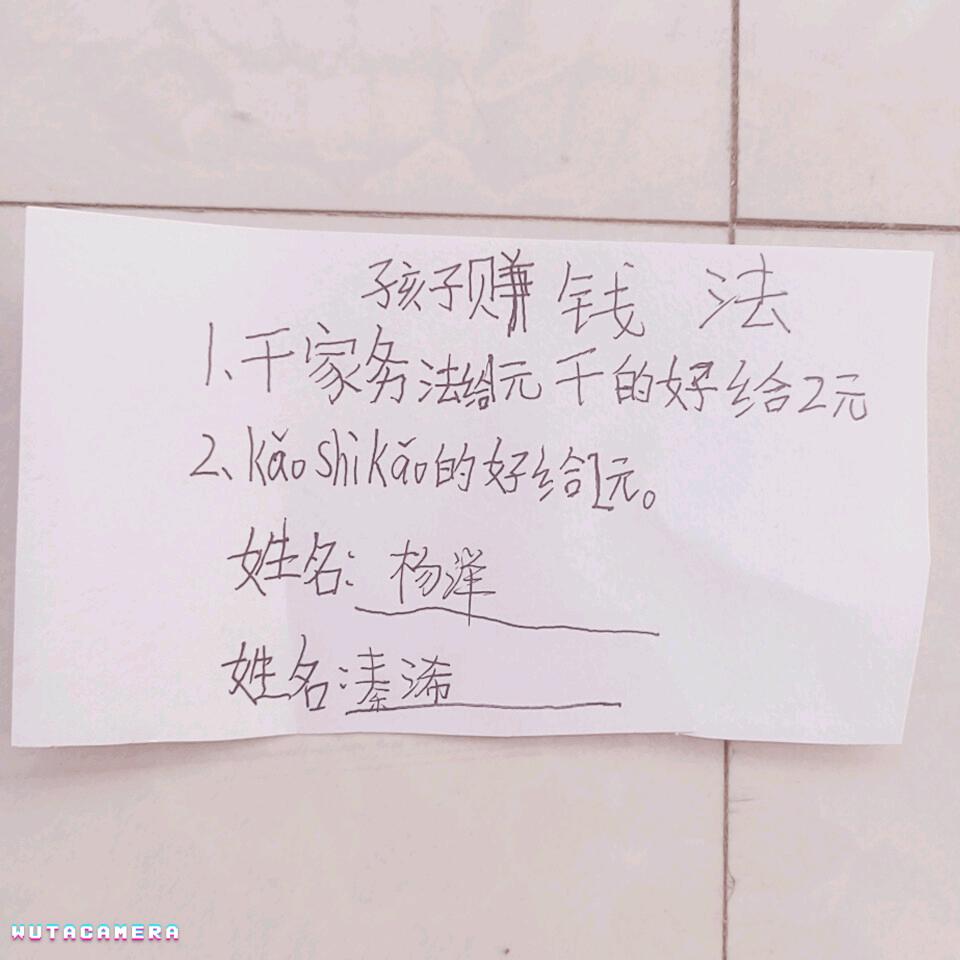 孩子赚钱法
1、干家务法给1元干的好给2元
2、kǎo shi kǎo的好给1元。
姓名：杨泽
姓名：溱浠
WUTACAMERA